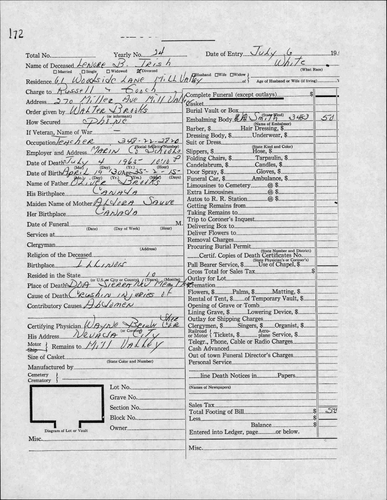 172
Total No. Yearly No. 34 Date of Entry July 6 19
Name of Deceased Lenore B. Trish White
(What Race)
Married Single Widowed Divorced Husband Wife Widow
Age of Husband or Wife (if living)
Residence 61 Woodside Lane Mill Valley
Charge to Russell & Gooch
Address 270 Miller Ave Mill Valley
Order given by Walter Brooks
(or informant)
How Secured Phone
If Veteran, Name of War
Occupation Teacher
Employer and Address Marin Co Schools
Date of Death July 4 1965 10:10 P
Date of Birth April 19
(Mo.) (Day) (Yr.)
Name of Father Oliver Brooks
His Birthplace Canada
Maiden Name of Mother Alvira Sauve
Her Birthplace Canada
Date of Funeral M
(Date) (Day of Week) (Hour)
Services at
Clergyman
(Address)
Religion of the Deceased
Birthplace Illinois
Resided in the State 10
Place of Death DOA Sierra Nev Mem Hosp
Cause of Death Crushing injuries of
Contributory Causes Abdomen
Certifying Physician Wayne Brown
(or Coroner)
His Address Nevada City
Motor
Ship
Remains to Mill Valley
Size of Casket
(State Color and Number)
Manufactured by
Cemetery
Crematory
Lot No.
Grave No.
Section No.
Block No.
Owner
Diagram of Lot or Vault
Misc.
Complete Funeral (except outlays) $
Casket
Burial Vault or Box
Embalming Body Smith 3482 50
(Name of Embalmer)
Barber, $ Hair Dressing, $
Dressing Body, $ Underwear, $
Suit or Dress
(State Kind and Color)
Slippers, $ Hose, $
Folding Chairs, $ Tarpaulin, $
Candelabrum, $ Candles, $
Door Spray, $ Gloves, $
Funeral Car, $ Ambulance, $
Limousines to Cemetery @ $
Extra Limousines @ $
Autos to R. R. Station @ $
Getting Remains from
Taking Remains to
Trip to Coroner's Inquest
Delivering Box to
Deliver Flowers to
Removal Charges
Procuring Burial Permit
(State Number and District)
Certif. Copies of Death Certificates No.
Pall Bearer Service, $ Use of Chapel, $
Gross Total for Sales Tax $
Cremation
Flowers, $ Palms, $ Matting, $
Rental of Tent, $ of Temporary Vault, $
Opening of Grave or Tomb
Lining Grave, $ Lowering Device, $
Outlay for Shipping Charges
Clergymen, $ Singers, $ Organist, $
Railroad
or Motor
Tickets, $ plane Service, $
Telegr., Phone, Cable or Radio Charges
Cash Advanced
Out of town Funeral Director's Charges
Personal Service
line Death Notices in Papers
(Names of Newspapers)
Sales Tax
Total Footing of Bill $ 50
Less $
Balance $
Entered into Ledger, page or below.
Misc.